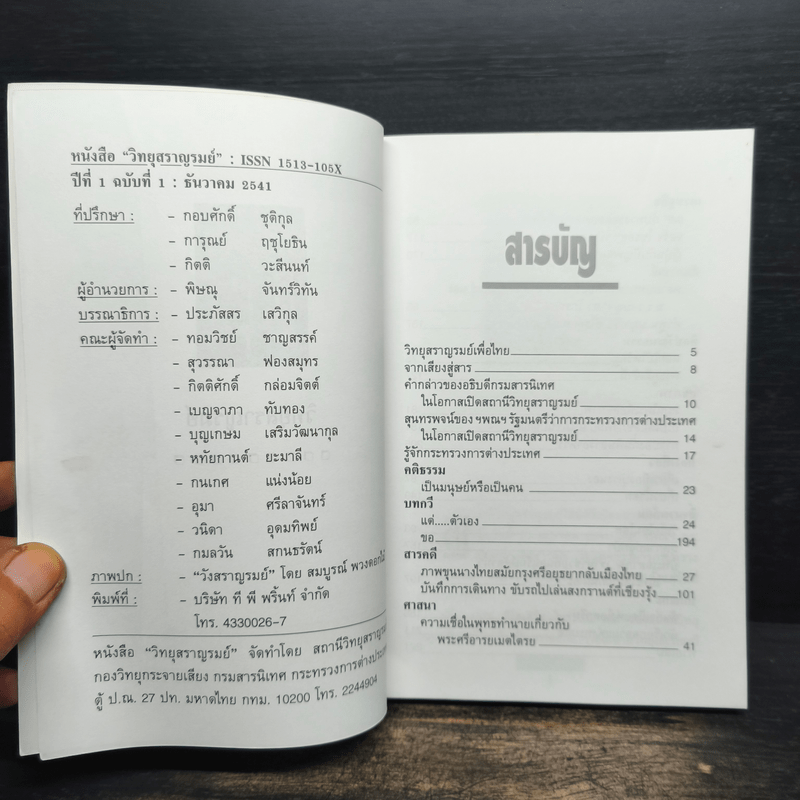 หนังสือ “วิทยุสราญรมย์” : ISSN 1513-105X
ปีที่ 1 ฉบับที่ 1 : ธันวาคม 2541
ที่ปรึกษา : - กอบศักดิ์ ชุติกุล
- การุณย์ ฤชุโยธิน
- กิตติ วะสีนนท์
ผู้อำนวยการ : - พิษณุ จันทร์วิทัน
บรรณาธิการ : - ประภัสสร เสวิกุล
คณะผู้จัดทำ : - ทอมวิชย์ ชาญสรรค์
- สุวรรณา ฟองสมุทร
- กิตติศักดิ์ กล่อมจิตต์
- เบญจาภา ทับทอง
- บุญเกษม เสริมวัฒนากุล
- หทัยกานต์ ยะมาลี
- กนเกศ แน่งน้อย
- อุมา ศรีลาจันทร์
- วนิดา อุดมทิพย์
- กมลวัน สกนธรัตน์
ภาพปก : - “วังสราญรมย์” โดย สมบูรณ์ พวงดอกไม้
พิมพ์ที่ : - บริษัท ที พี พริ้นท์ จำกัด
โทร. 4330026-7
หนังสือ “วิทยุสราญรมย์” จัดทำโดย สถานีวิทยุสราญรมย์
กองวิทยุกระจายเสียง กรมสารนิเทศ กระทรวงการต่างประเทศ
ตู้ ป.ณ. 27 ปท. มหาดไทย กทม. 10200 โทร. 2244904
สารบัญ
วิทยุสราญรมย์เพื่อไทย 5
จากเสียงสู่สาร 8
คำกล่าวของอธิบดีกรมสารนิเทศ
ในโอกาสเปิดสถานีวิทยุสราญรมย์ 10
สุนทรพจน์ของ ฯพณฯ รัฐมนตรีว่าการกระทรวงการต่างประเทศ
ในโอกาสเปิดสถานีวิทยุสราญรมย์ 14
รู้จักกระทรวงการต่างประเทศ 17
คติธรรม
เป็นมนุษย์หรือเป็นคน 23
บทกวี
แด่.....ตัวเอง 24
ขอ 194
สารคดี
ภาพขุนนางไทยสมัยกรุงศรีอยุธยากลับเมืองไทย 27
บันทึกการเดินทาง ขับรถไปเล่นสงกรานต์ที่เชียงรุ้ง 101
ศาสนา
ความเชื่อในพุทธทำนายเกี่ยวกับ
พระศรีอารยเมตไตรย 41